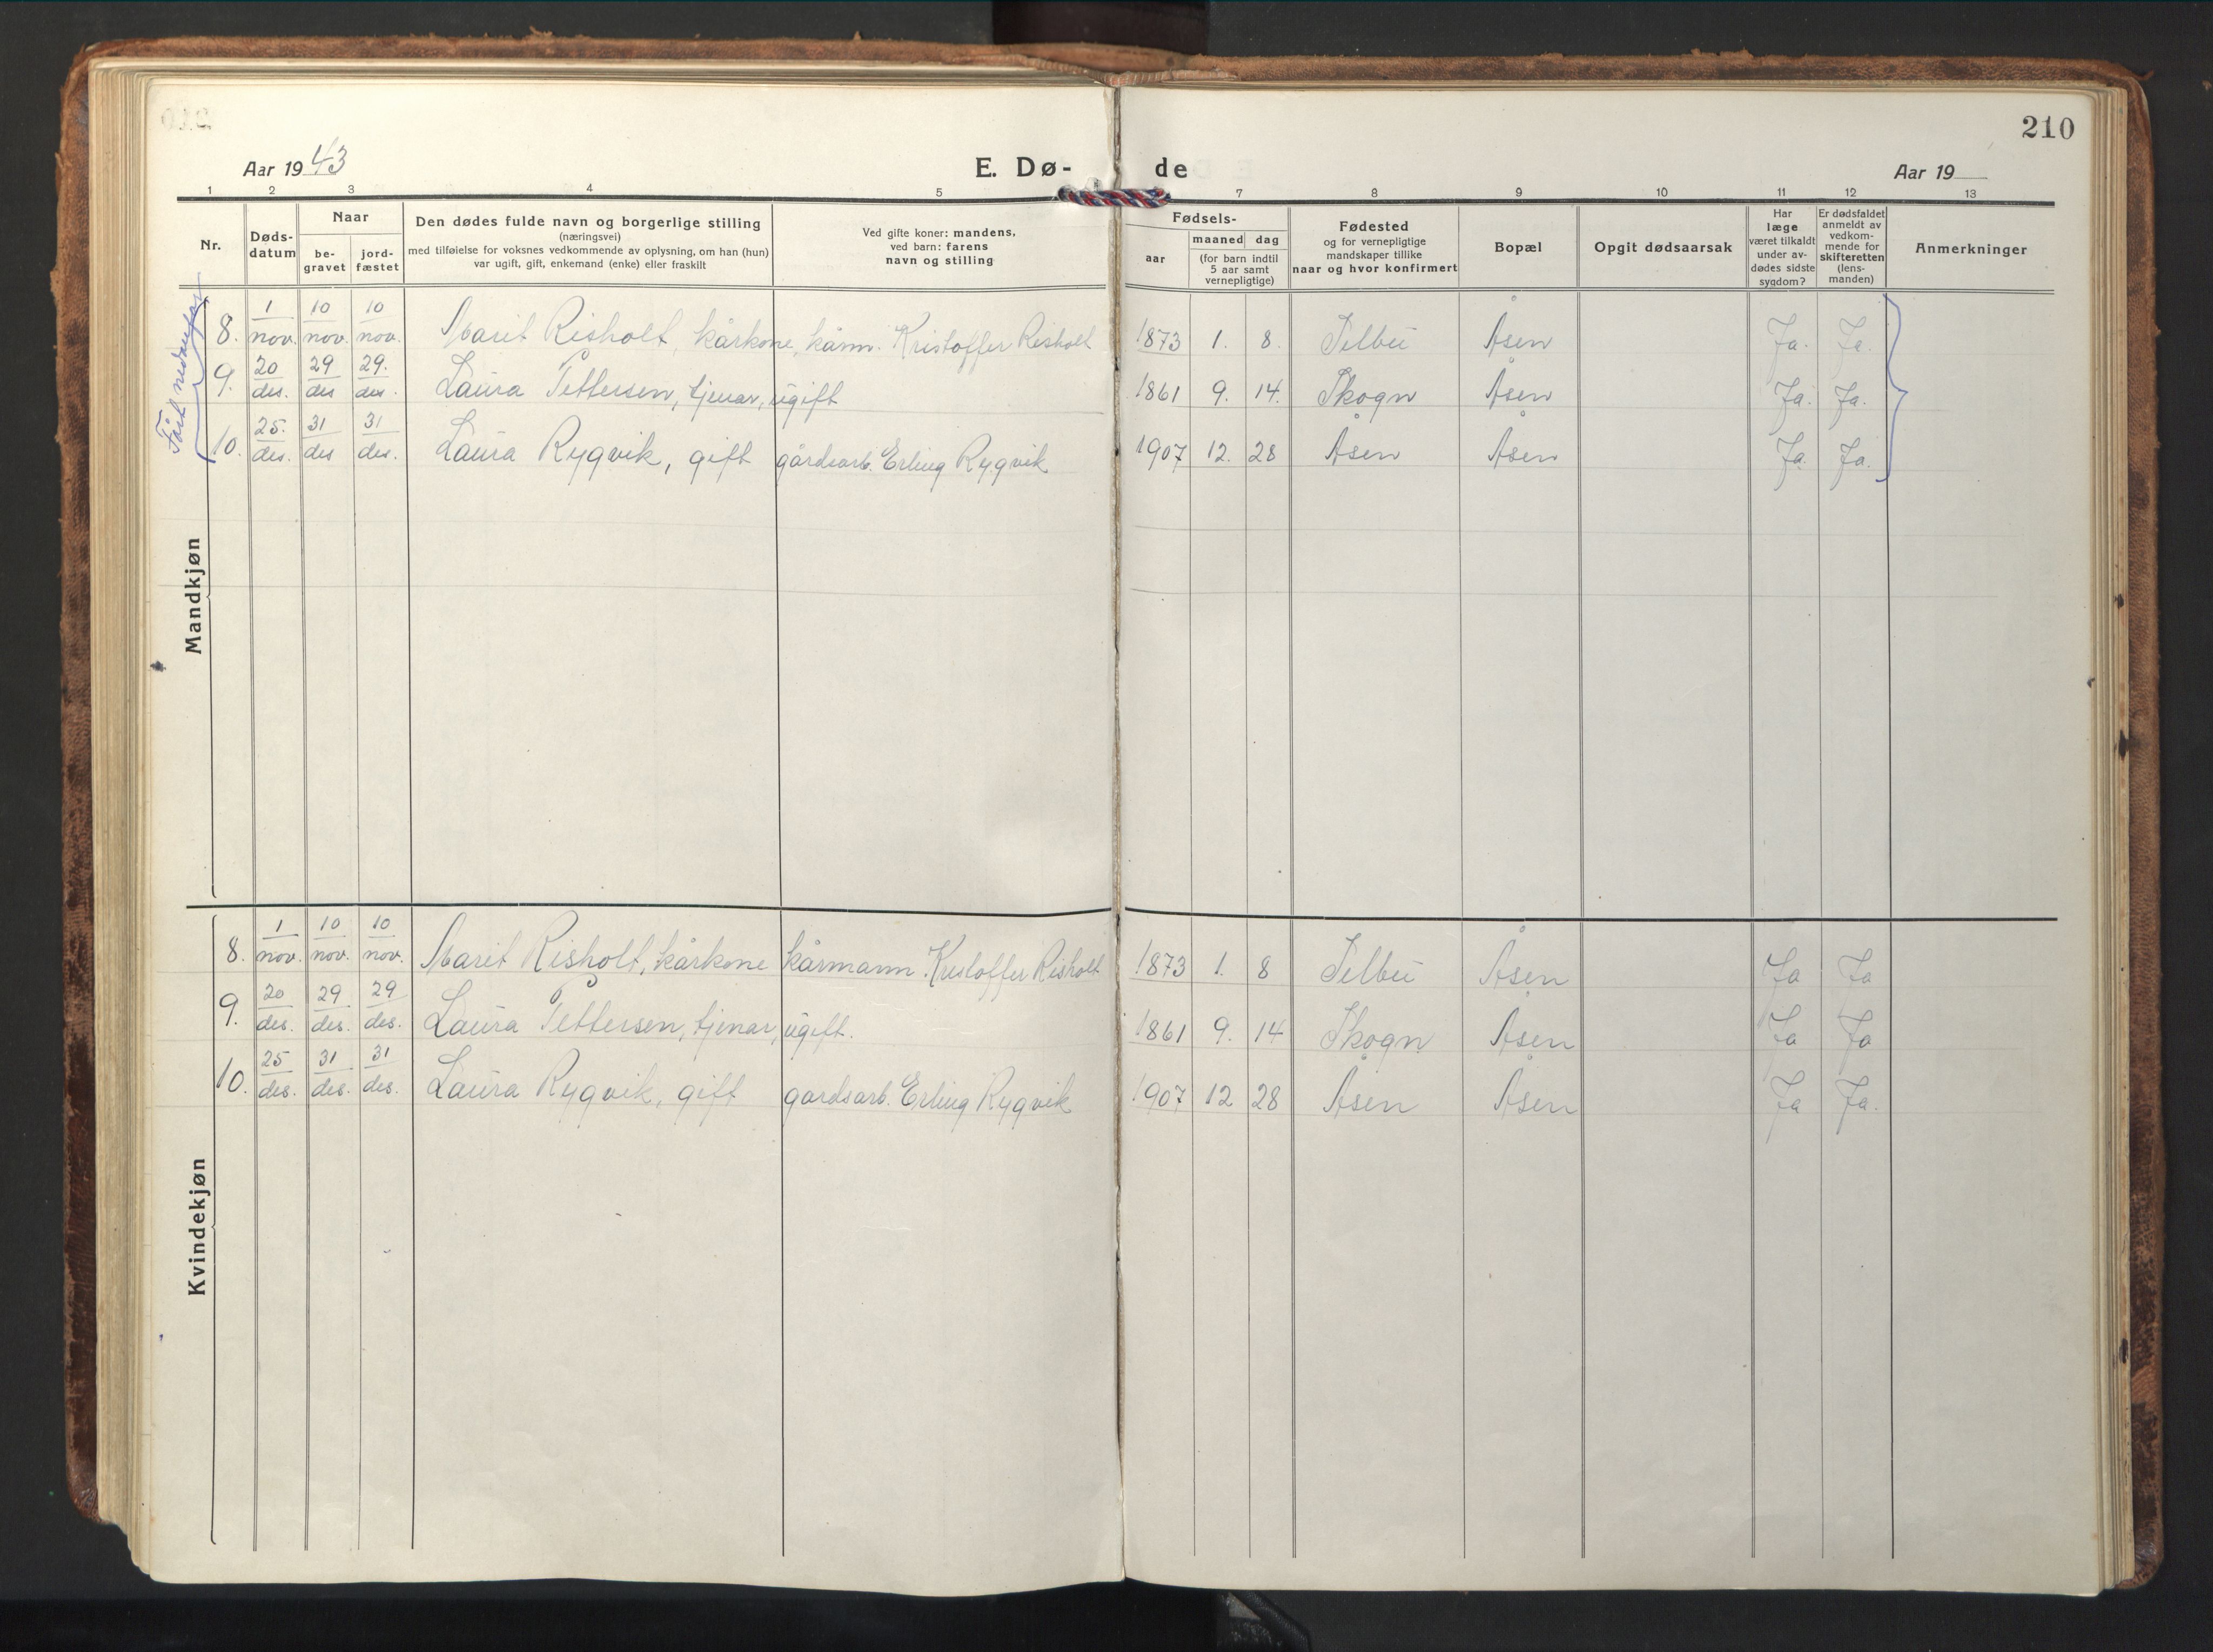 210
Aar 1943
E. Dø-
de
Aar 19
1 2 3 4 5 7 8 9 10 11 12 13
Nr.
Døds-
datum
Naar
be-
gravet
jord-
fæstet
Den dødes fulde navn og borgerlige stilling
(næringsvei)
med tilføielse for voksnes vedkommende av oplysning, om han (hun)
var ugift, gift, enkemand (enke) eller fraskilt
Ved gifte koner: mandens,
ved barn: farens
navn og stilling
Fødsels-
aar
maaned dag
(for barn indtil
5 aar samt
vernepligtige)
Fødested
og for vernepligtige
mandskaper tillike
naar og hvor konfirmert
Bopæl
Opgit dødsaarsak
Har
læge
været tilkaldt
under av-
dødes sidste
sygdom?
Er dødsfaldet
anmeldt av
vedkom-
mende for
skifteretten
(lens-
manden)
Anmerkninger
Mandkjøn
8. 1 nov. 10 nov. 10 nov. Marit Risholt, kårkone, kårm. Kristoffer Risholt 1873 1. 8. Selbu Åsen Ja. Ja.
9. 20 des. 29 des 29. des. Laura Pettersen, tjenar, ugift 1861 9. 14. Skogn Åsen Ja. Ja.
10. 25. des. 31 des 31 des. Laura Rygvik, gift gårdsarb. Erling Rygvik 1907 12. 28 Åsen Åsen Ja. Ja.
Kvindekjøn
8. 1 nov. 10 nov. 10 nov. Marit Risholt, kårkone kårmann Kristoffer Risholt 1873 1. 8 Selbu Åsen Ja Ja
9. 20 des. 29 des. 29 des. Laura Pettersen, tjenar, ugift. 1861 9. 14 Skogn Åsen Ja Ja
10. 25 des. 31 des. 31 des. Laura Rygvik, gift gårdsarb. Erling Rygvik 1907 12 28 Åsen Åsen Ja Ja.